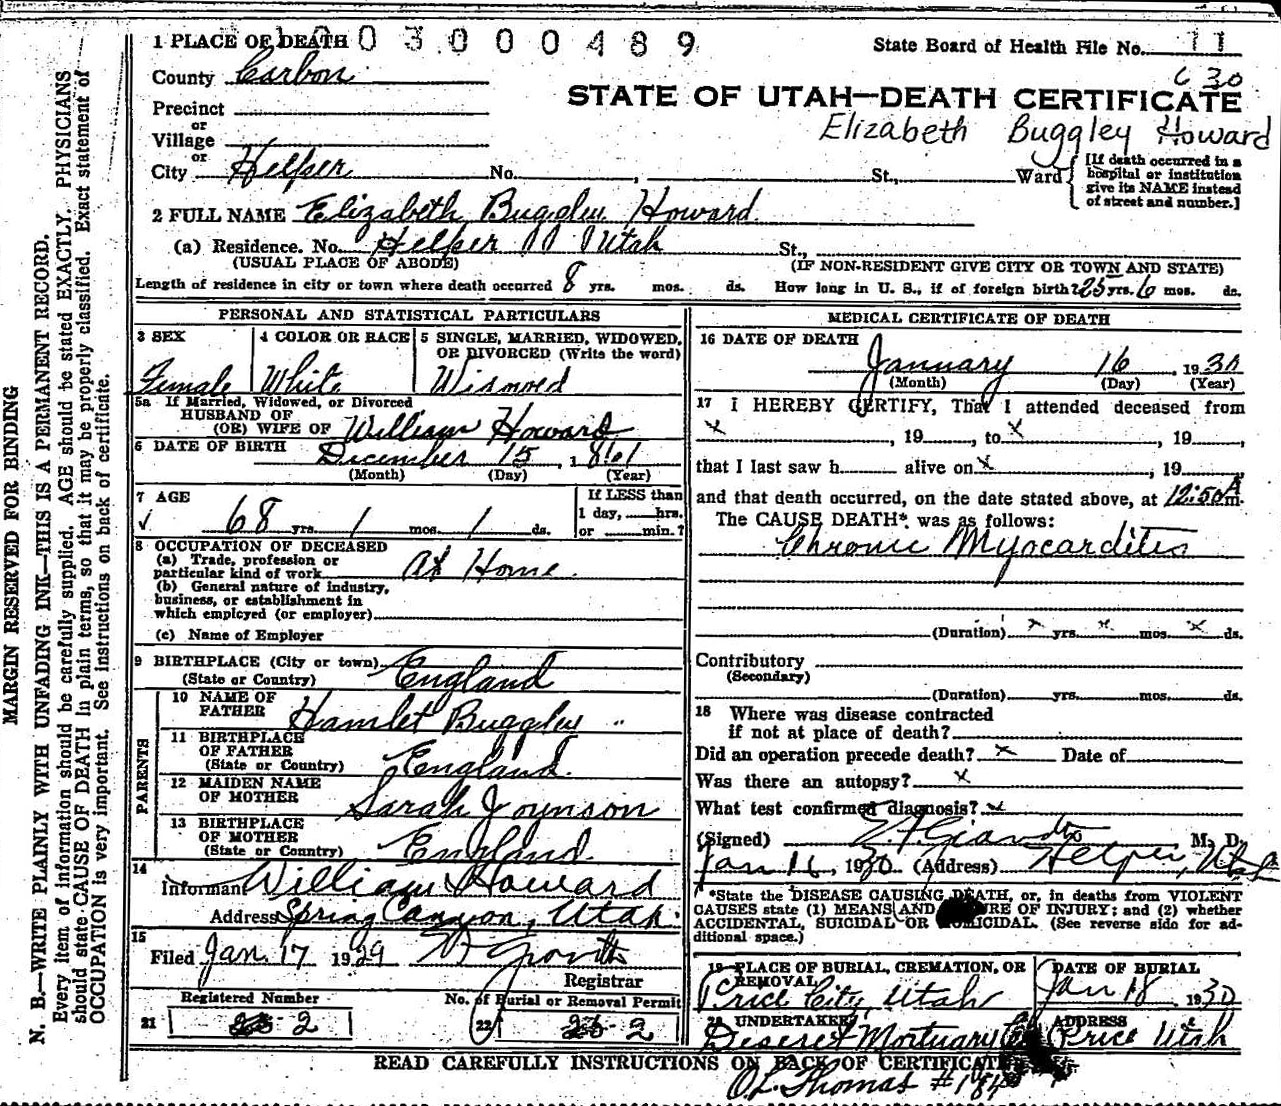 1 PLACE OF DEATH 003000489 State Board of Health File No. 11
County Carbon 630
STATE OF UTAH—DEATH CERTIFICATE
Precinct
Elizabeth Buggley Howard
or
Village
or
City Helper No. , St., Ward
[If death occurred in a
hospital or institution
give its NAME instead
of street and number.]
2 FULL NAME Elizabeth Buggley Howard
(a) Residence. No. Helper Utah St.,
(USUAL PLACE OF ABODE) (IF NON-RESIDENT GIVE CITY OR TOWN AND STATE)
Length of residence in city or town where death occurred 8 yrs. mos. ds. How long in U. S., if of foreign birth? 25 yrs. 6 mos. ds.
PERSONAL AND STATISTICAL PARTICULARS
3 SEX
Female
4 COLOR OR RACE
White
5 SINGLE, MARRIED, WIDOWED,
OR DIVORCED (Write the word)
Widowed
5a If Married, Widowed, or Divorced
HUSBAND OF
(OR) WIFE OF William Howard
6 DATE OF BIRTH December 15, 1861
(Month) (Day) (Year)
7 AGE
68 yrs. 1 mos. 1 ds.
If LESS than
1 day, hrs.
or min.?
8 OCCUPATION OF DECEASED
(a) Trade, profession or
particular kind of work At Home
(b) General nature of industry,
business, or establishment in
which employed (or employer)
(c) Name of Employer
9 BIRTHPLACE (City or town)
(State or Country) England
PARENTS
10 NAME OF
FATHER Hamlet Buggley
11 BIRTHPLACE
OF FATHER
(State or Country) England
12 MAIDEN NAME
OF MOTHER Sarah Joynson
13 BIRTHPLACE
OF MOTHER
(State or Country) England
14
Informant William Howard
Address Spring Canyon, Utah.
15
Filed Jan. 17 1929
Registrar
Registered Number
21 2
No. of Burial or Removal Permit
22 2
MEDICAL CERTIFICATE OF DEATH
16 DATE OF DEATH
January 16, 1930
(Month) (Day) (Year)
17 I HEREBY CERTIFY, That I attended deceased from
x, 19, to x, 19,
that I last saw h alive on x, 19
and that death occurred, on the date stated above, at 12:50 A m.
The CAUSE DEATH* was as follows:
Chronic Myocarditis
(Duration) x yrs. x mos. x ds.
Contributory
(Secondary)
(Duration) yrs. mos. ds.
18 Where was disease contracted
if not at place of death?
Did an operation precede death? x Date of
Was there an autopsy? x
What test confirmed diagnosis? x
(Signed) M. D.
Jan 16, 1930 (Address) Helper, Utah
*State the DISEASE CAUSING DEATH, or, in deaths from VIOLENT
CAUSES state (1) MEANS AND OF INJURY; and (2) whether
ACCIDENTAL, SUICIDAL OR HOMICIDAL. (See reverse side for ad-
ditional space.)
19 PLACE OF BURIAL, CREMATION, OR
REMOVAL
Price City, Utah
DATE OF BURIAL
Jan 18, 1930
20 UNDERTAKER
Deseret Mortuary Co
ADDRESS
Price Utah
READ CAREFULLY INSTRUCTIONS ON BACK OF CERTIFICATE
O.L. Thomas #184
MARGIN RESERVED FOR BINDING
N. B.—WRITE PLAINLY WITH UNFADING INK—THIS IS A PERMANENT RECORD.
Every item of information should be carefully supplied. AGE should be stated EXACTLY. PHYSICIANS
should state CAUSE OF DEATH in plain terms, so that it may be properly classified. Exact statement of
OCCUPATION is very important. See instructions on back of certificate.